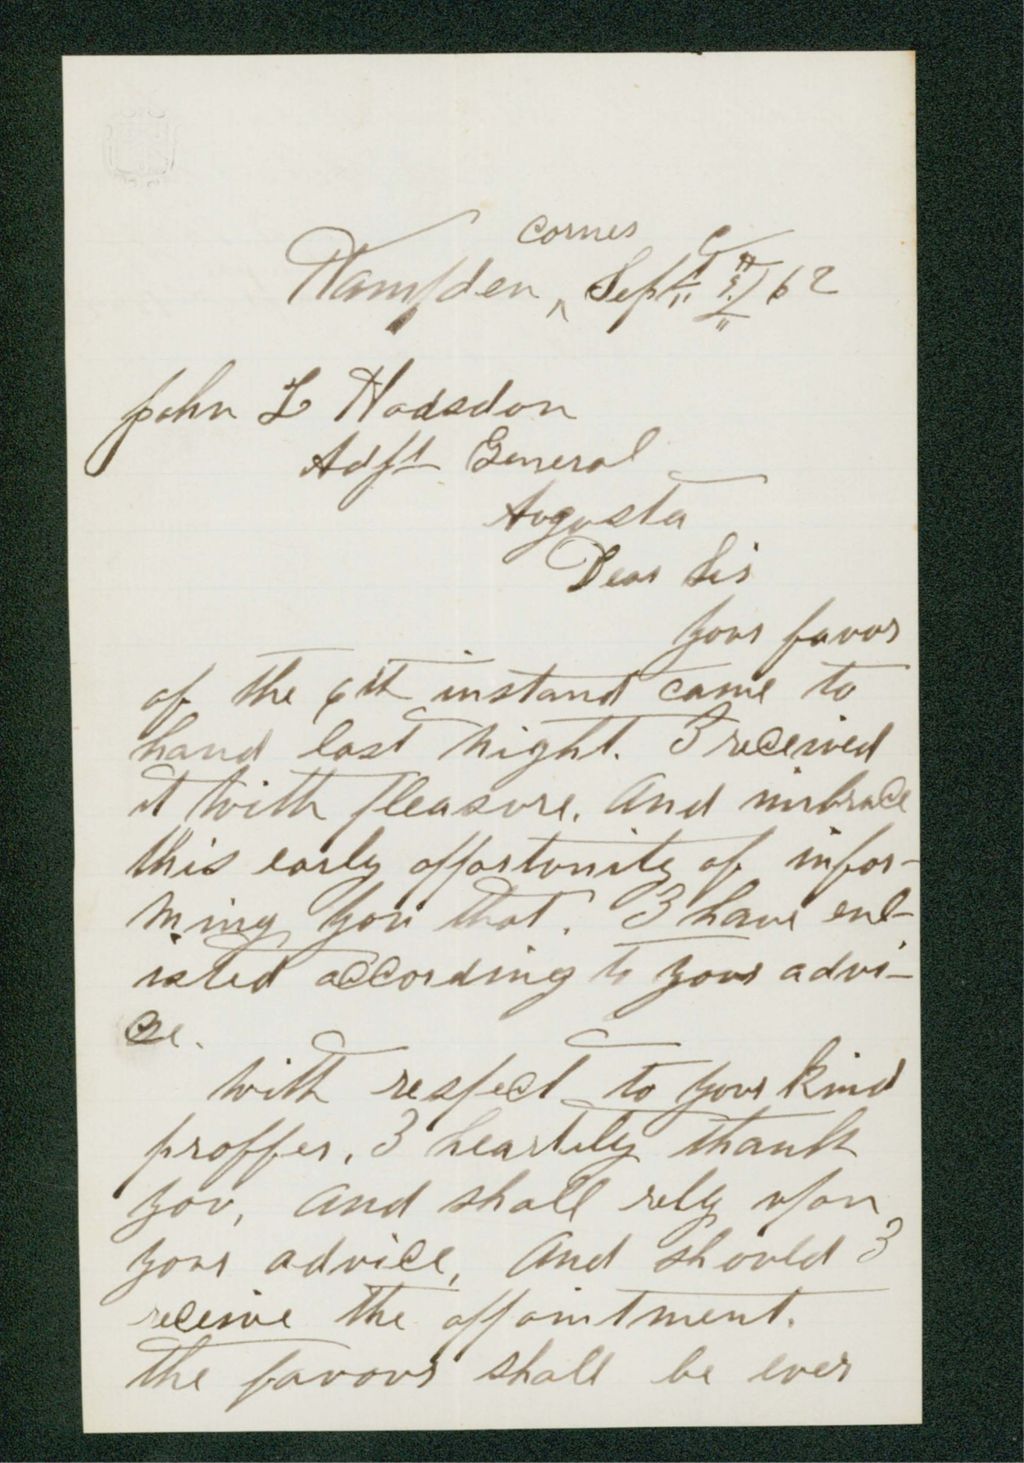 cornes
Hampden ^ Sept 9th/62
John L Hodsdon
Adjt General
Augusta
Dear Sir
Your favor
of the 6th instand came to
hand last night. I received
it with pleasure, and imbrace
this early opportunity of infor-
ming you that. I have enl-
isted according to your advi-
ce.
With respect to your kind
proffer, I heartily thank
you, and shall rely upon
your advice, and should I
receive the appointment.
the favour shall be ever